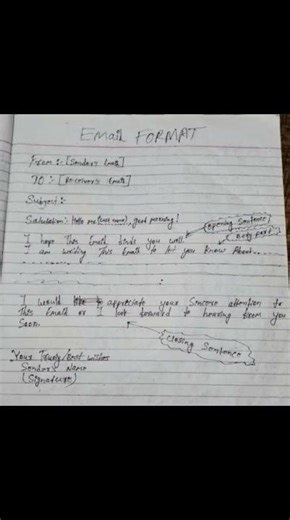 Email FORMAT
From :- [Sender's Email]
TO :- [Receiver's Email]
Subject :-
Salutation :- Hello Mr (last name), good morning!
opening sentence
I hope this Email finds you well.
Body part
I am writing this Email to let you know About....
I would appreciate your Sincere attention to
this Email or I look forward to hearing from you
Soon.
closing sentence
Your Truly/Best wishes
Sender's Name
(Signature)